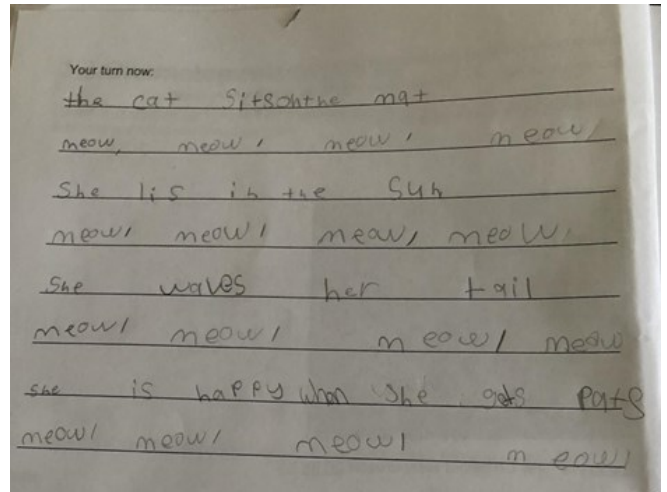 Your turn now:
the cat sitsonthe mat
meow, meow, meow, meow,
She lis in the Sun
meow, meow, meow, meow,
She waves her tail
meow, meow, meow, meow
she is happy when she gets Pats
meow, meow, meow, meow,